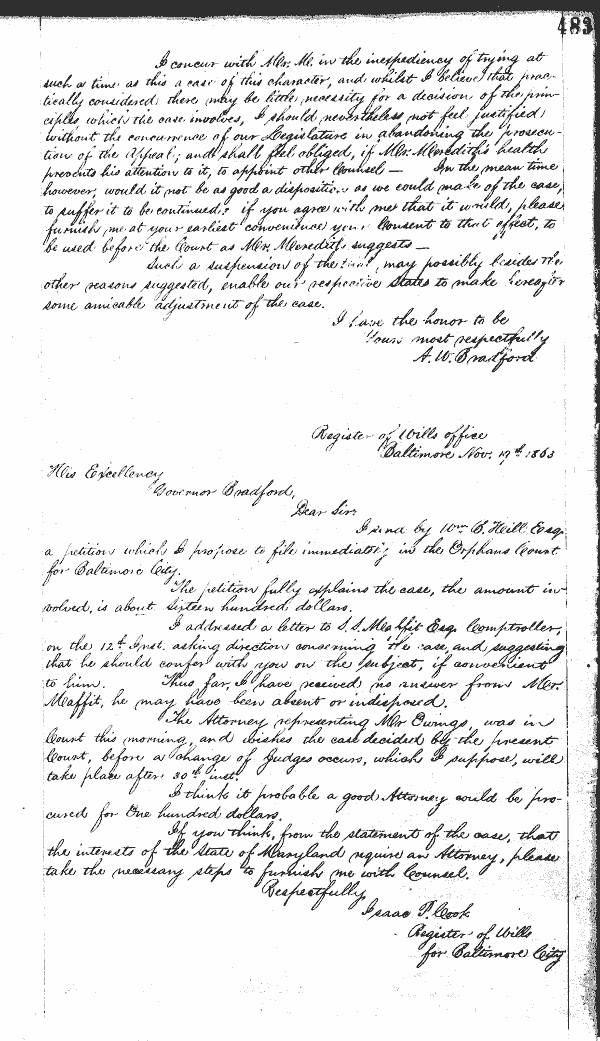 483
I concur with Mr. M. in the inexpediency of trying at
such a time as this a case of this character, and whilst I believe that prac-
tically considered there may be little necessity for a decision of the prin-
ciples which the case involves, I should nevertheless not feel justified
without the concurrence of our Legislature in abandoning the prosecu-
tion of the Appeal; and shall feel obliged, if Mr. Meredith's health
prevents his attention to it, to appoint other Counsel — In the mean time
however, would it not be as good a disposition as we could make of the case,
to suffer it to be continued: if you agree with me that it would, please
furnish me at your earliest convenience your Consent to that effect, to
be used before the Court as Mr. Meredith suggests —
Such a suspension of the may possibly besides the
other reasons suggested, enable our respective States to make hereafter
some amicable adjustment of the case.
I have the honor to be
Yours most respectfully
A. W. Bradford
Register of Wills office
Baltimore Nov. 17th 1863
His Excellency
Governor Bradford,
Dear Sir:
I send by Wm. B. Hill Esq.
a petition which I propose to file immediately in the Orphans Court
for Baltimore City.
The petition fully explains the case, the amount in-
volved, is about sixteen hundred dollars.
I addressed a letter to S. S. Meaffit Esq. Comptroller,
on the 12th Inst. asking direction concerning the case, and suggesting
that he should confer with you on the subject, if convenient
to him. Thus far, I have received no answer from Mr.
Maffit, he may have been absent or indisposed.
The Attorney representing Mr Owings, was in
Court this morning, and wishes the case decided by the present
Court, before a change of Judges occurs, which I suppose, will
take place after 30th inst.
I think it probable a good Attorney could be pro-
cured for One hundred dollars.
If you think, from the statement of the case, that
the interests of the State of Maryland require an Attorney, please
take the necessary steps to furnish me with Counsel.
Respectfully
Isaac P. Cook
Register of Wills
for Baltimore City